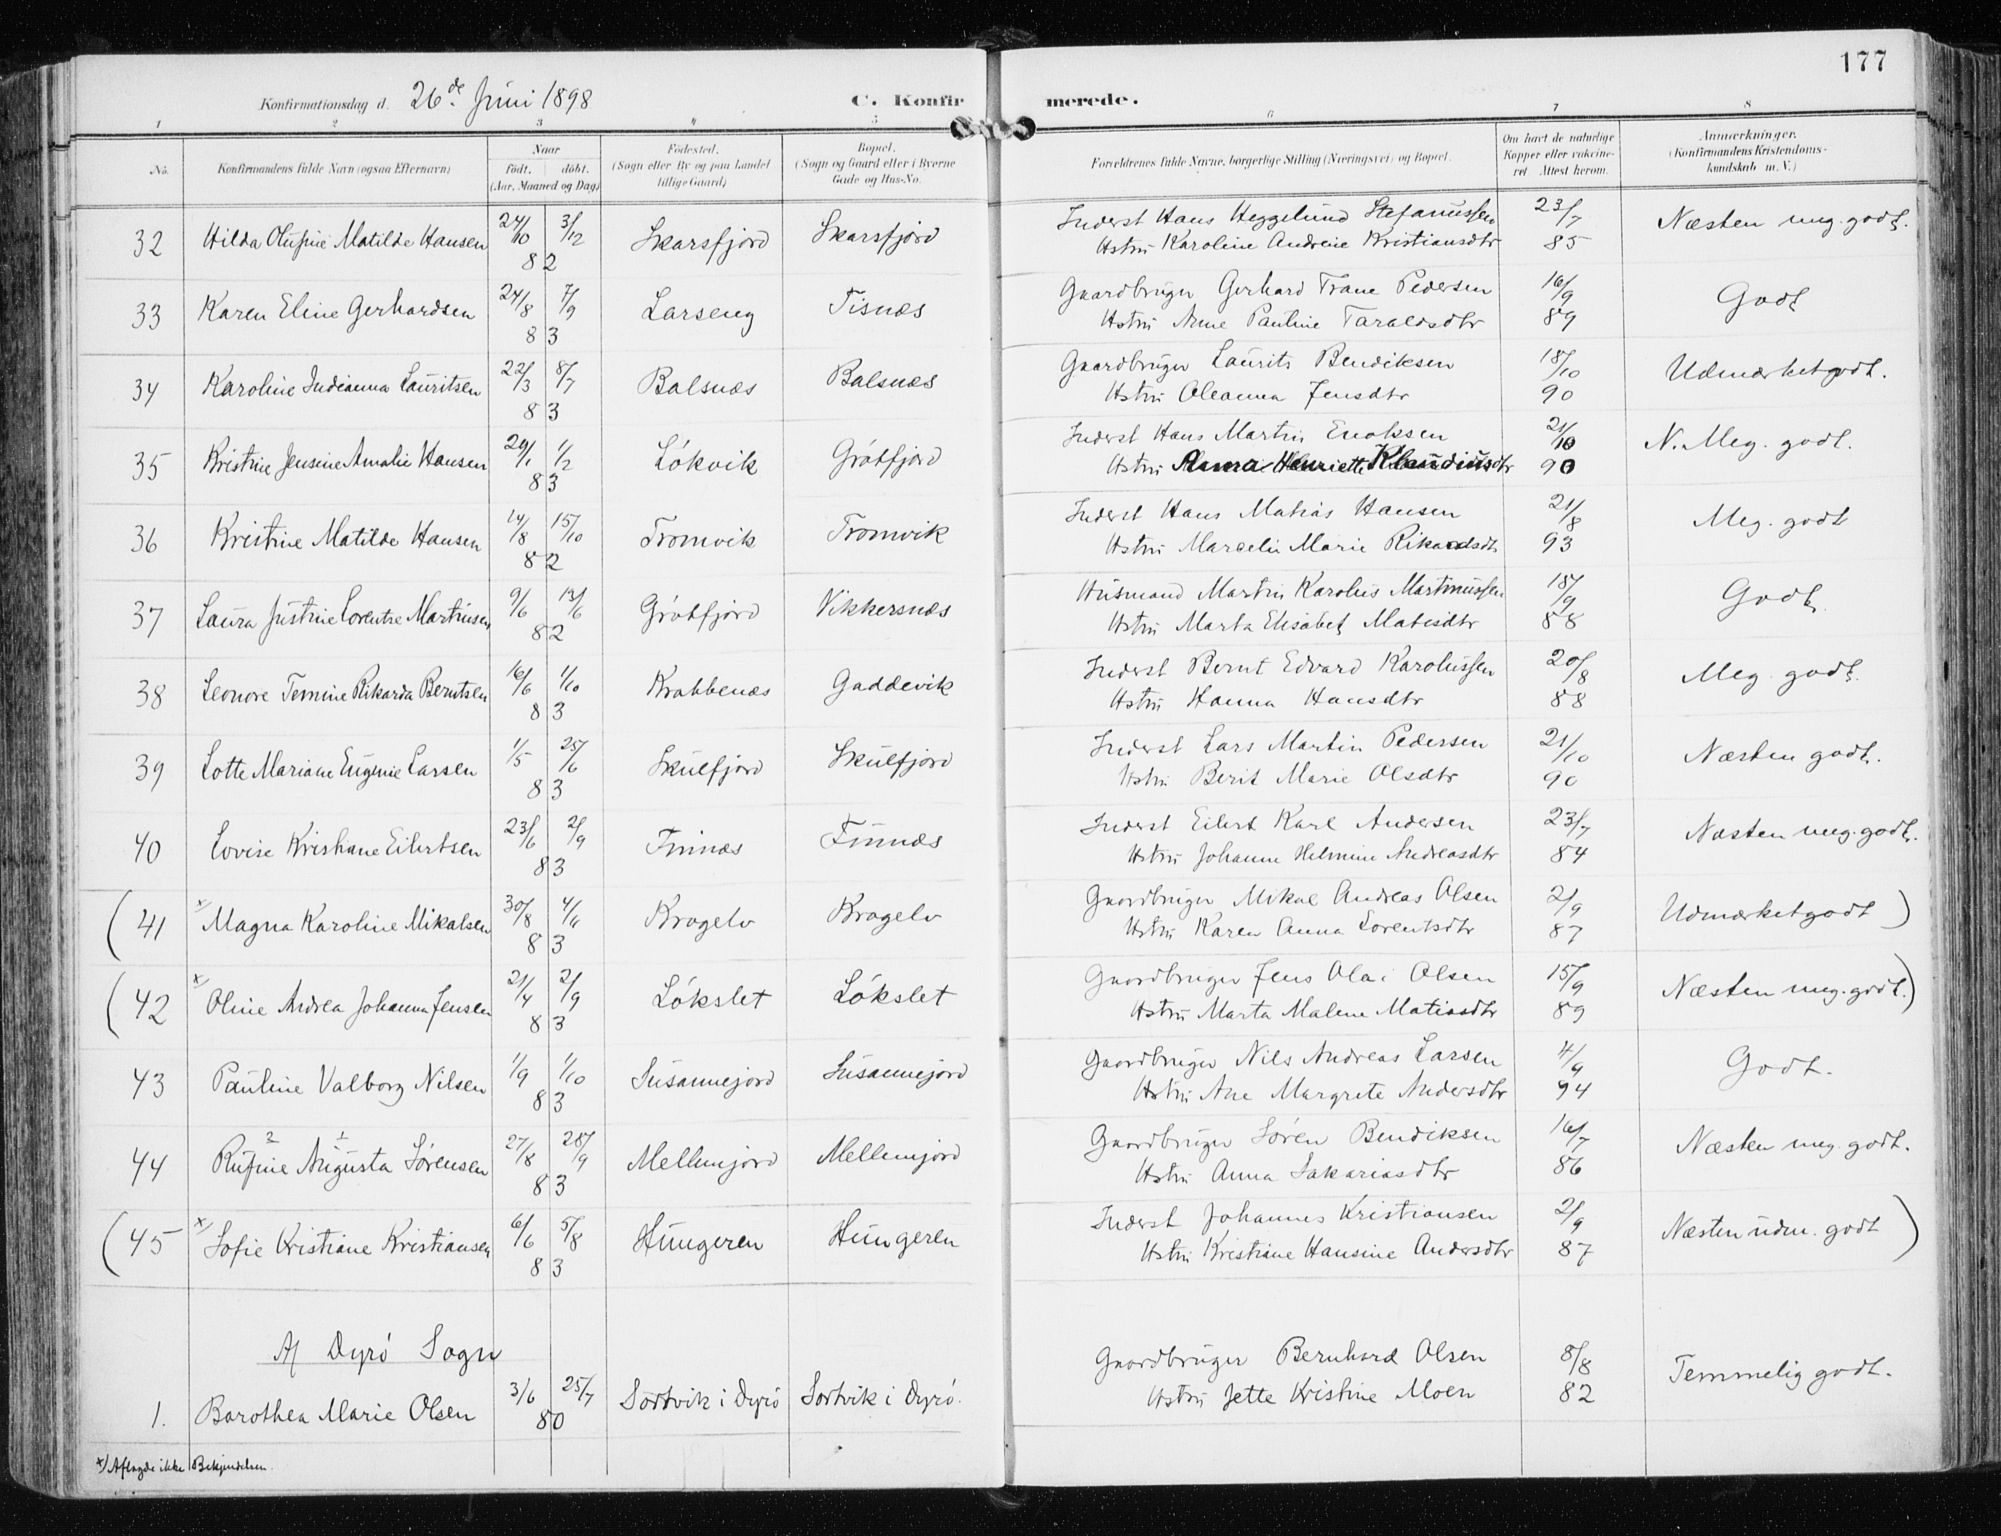 177
Konfirmationsdag d. 26de Juni 1898 C. Konfirmerede.
1 2 3 4 5 6 7 8
No. Konfirmandens fulde Navn (ogsaa Efternavn) Naar födt. döbt. (Aar, Maaned og Dag) Födested. (Sogn eller By og paa Landet tillige Gaard) Bopæl. (Sogn og Gaard eller i Byerne Gade og Hus-No. Forældrenes fulde Navne, borgerlige Stilling (Næringsvei) og Bopæl. Om havt de naturlige Kopper eller vaccineret Attest herom. Anmærkninger. (Konfirmandens Kristendomskundskab m. V.)
32 Hilda Olufine Matilde Hansen 24/10 3/12 82 Skarsfjord Skarsfjord Inderst Hans Heggelund Stefanussen 23/7 85 Næsten meg. godt.
Hstru Karoline Andreie Kristiansdtr
33 Karen Eline Gerhardsen 24/8 7/9 83 Larseng Tisnæs Gaardbruger Gerhard Trane Pedersen 16/9 89 Godt
Hstru Anne Pauline Taraldsdtr
34 Karoline Indianna Lauritsen 22/3 8/7 83 Balsnæs Balsnæs Gaardbruger Laurits Bendiksen 18/10 90 Udmærket godt.
Hstru Oleanna Jensdtr
35 Kristine Jensine Amalie Hansen 29/1 1/2 83 Lökvik Grötfjord Inderst Hans Martin Enoksen 21/10 90 N. Meg. godt.
Hstru Anna Henriette Klaudiusdtr
36 Kristine Matilde Hansen 14/8 15/10 82 Tromvik Tromvik Inderst Hans Matias Hansen 21/8 93 Meg. godt
Hstru Marcelie Marie Rikardsdt.
37 Laura Justine Lorentze Martinsen 9/6 13/6 82 Grötfjord Vikkersnæs Husmand Martin Karolus Martinussen 18/9 88 Godt.
Hstru Marta Elisabet Matisdtr
38 Leonore Temine Rikarda Berntsen 16/6 1/10 83 Krabbenæs Gaddevik Inderst Bernt Edvard Karolussen 20/8 88 Meg. godt.
Hstru Hanna Hansdtr
39 Lotte Mariane Eugenie Larsen 1/5 25/6 83 Skulfjord Skulfjord Inderst Lars Martin Pedersen 21/10 90 Næsten godt.
Hstru Berit Marie Olsdtr
40 Lovise Kristiane Eilertsen 23/6 2/9 83 Finnæs Finnæs Inderst Eilert Karl Andersen 23/7 84 Næsten meg. godt.
Hstru Johanne Helmine Andreasdtr
(41 x) Magna Karoline Mikalsen 30/8 4/11 83 Kragelv Kragelv Gaardbruger Mikal Andreas Olsen 2/9 87 Udmærket godt)
Hstru Karen Anna Lorentsdtr
(42 x) Oline Andrea Johanna Jensen 21/4 2/9 83 Lökslet Lökslet Gaardbruger Jens Olai Olsen 15/9 89 Næsten meg. godt.)
Hstru Marta Malene Matiasdtr
43 Pauline Valborg Nilsen 1/9 1/10 83 Susannejord Susannejord Gaardbruger Nils Andreas Larsen 4/9 94 Godt.
Hstru Ane Margrete Andersdtr
44 Rufine 2 Augusta 1 Sørensen 27/8 28/9 83 Mellemjord Mellemjord Gaardbruger Sören Bendiksen 16/7 86 Næsten meg. godt.
Hstru Anna Sakariasdtr
(45 x) Sofie Kristiane Kristiansen 6/6 5/8 83 Hungeren Hungeren Inderst Johannes Kristiansen 2/9 87 Næsten udm. godt)
Hstru Kristiane Hansine Andersdtr
Af Dyrö Sogn
1. Barothea Marie Olsen 3/6 25/7 80 Sortvik i Dyrö Sortvik i Dyrö. Gaardbruger Bernhard Olsen 8/8 82 Temmelig godt.
Hstru Jette Kristine Moen
x) Aflagde ikke Bekjendelsen.